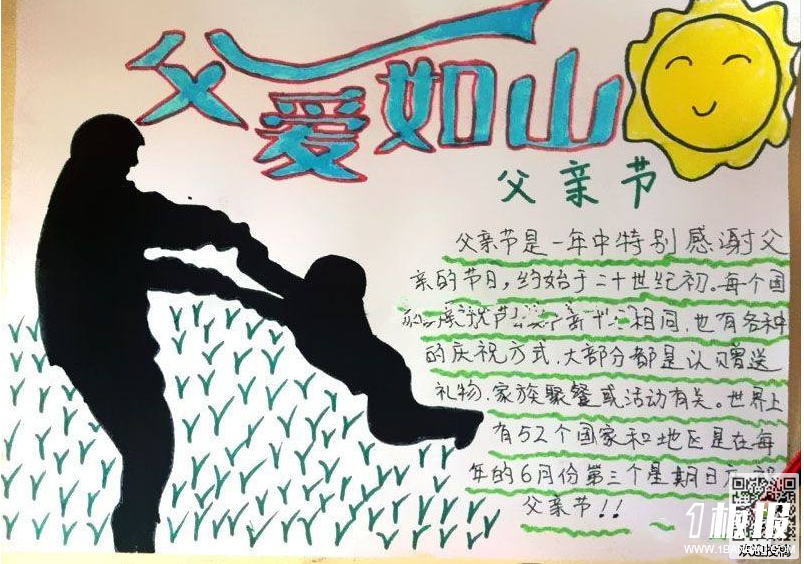 父爱如山
父亲节
父亲节是一年中特别感谢父
亲的节日，约始于二十世纪初。每个国
相同，也有各种
的庆祝方式，大部分都是认为赠送
礼物，家族聚餐或活动有关。世界上
有52个国家和地区是在每
年的6月份第三个星期日
父亲节！！
1板报
WWW.1BANBAO.COM